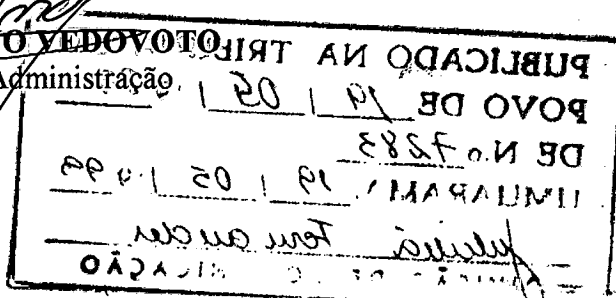 O VEDOVOTO
Administração
PUBLICADO NA TRIB
POVO DE 19 / 05 /
DE N.o 7283
UMUARAMA 19 / 05 / 1999
Fernandes